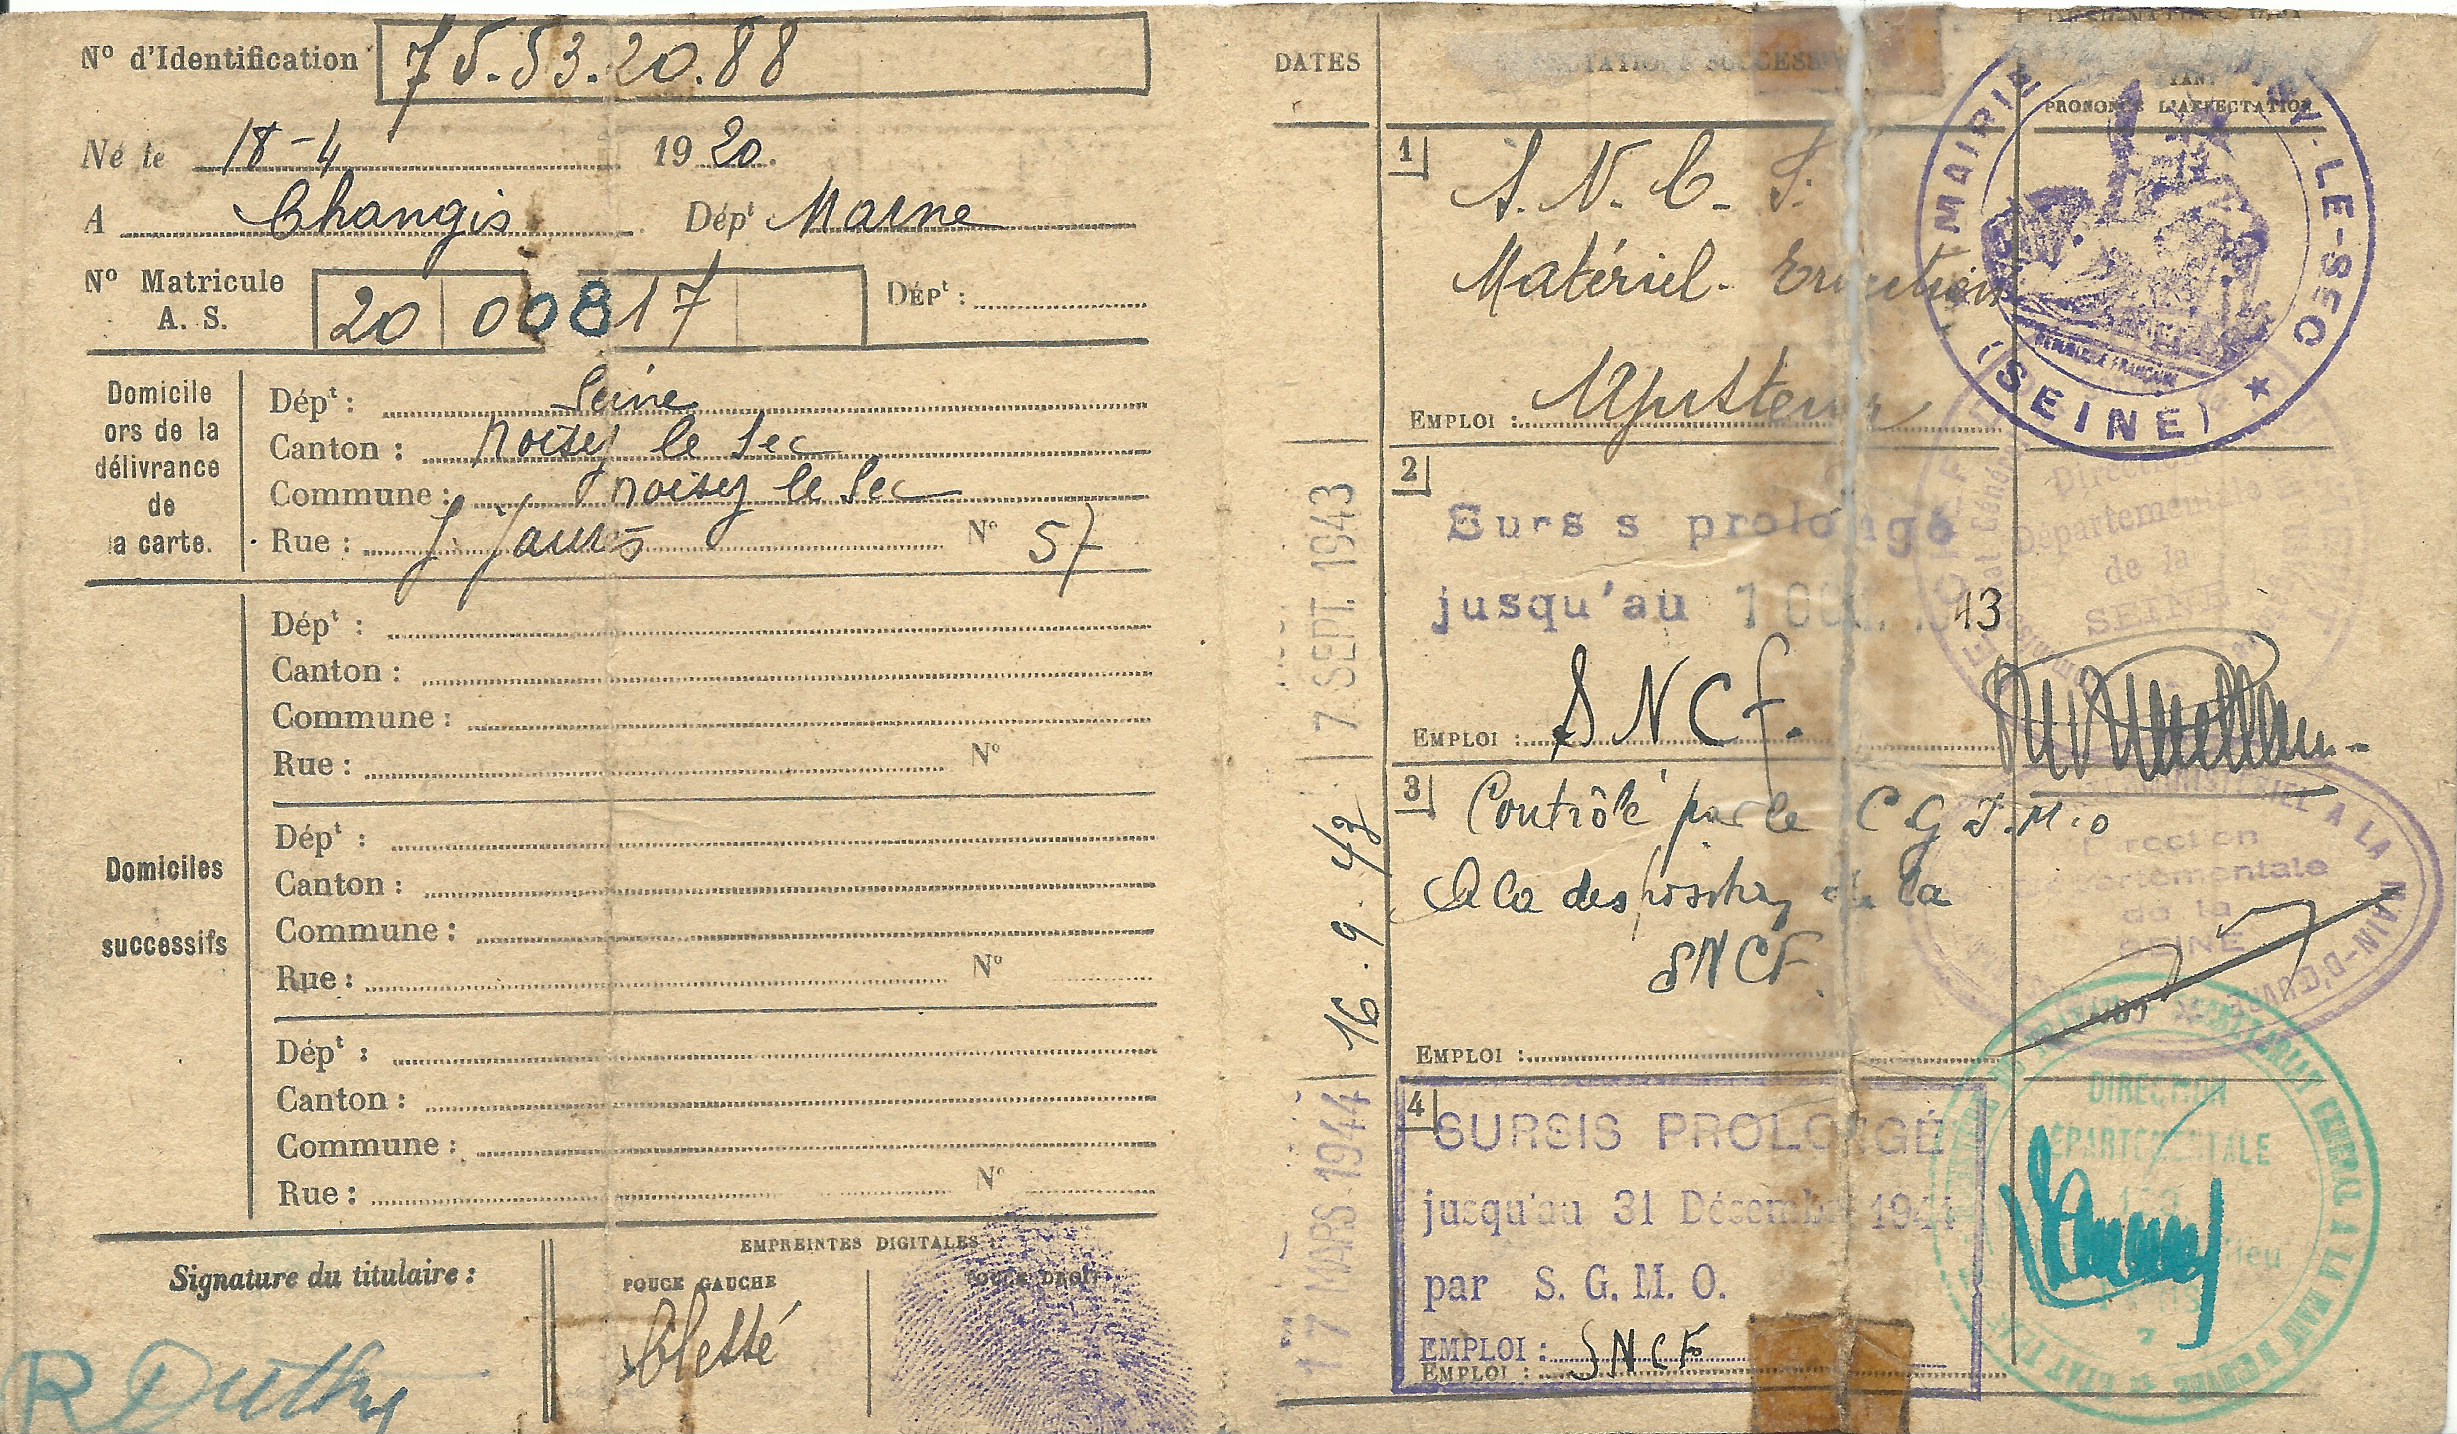 N° d'Identification 75.53.20.88
Né le 18-4 1920.
A Changis Dépt Marne
N° Matricule A. S. 20 00817 DÉPt :
Domicile
ors de la
délivrance
de
a carte.
Dépt : Seine
Canton : Noisy le Sec
Commune : noisy le Sec
Rue : J. Jaurès N° 57
Domiciles
successifs
Dépt :
Canton :
Commune :
Rue : N°
Dépt :
Canton :
Commune :
Rue : N°
Dépt :
Canton :
Commune :
Rue : N°
Signature du titulaire :
EMPREINTES DIGITALES :
POUCE GAUCHE
POUCE DROIT
Blessé
DATES
PRONONCÉ L'AFFECTATION
1
S. N. C. F.
Matériel -
Ajusteur
EMPLOI :
7 SEPT. 1943
2
Surs s prolongé
jusqu'au 1 43
EMPLOI : SNCF.
16.9.43
3
Contrôlé par le C.G.J.M.O
A la desposition de la
SNCF.
EMPLOI :
17 MARS 1944
4
SURSIS PROLONGÉ
jusqu'au 31 Décembre 1944
par S. G. M. O.
EMPLOI : SNCF
EMPLOI :
MAIRIE LE-SEC
(SEINE) ★
RÉPUBLIQUE FRANÇAISE
Départementale
de la
SEINE
A LA MAIN-D'ŒUVRE
de la
SEINE
DIRECTION
DÉPARTEMENTALE